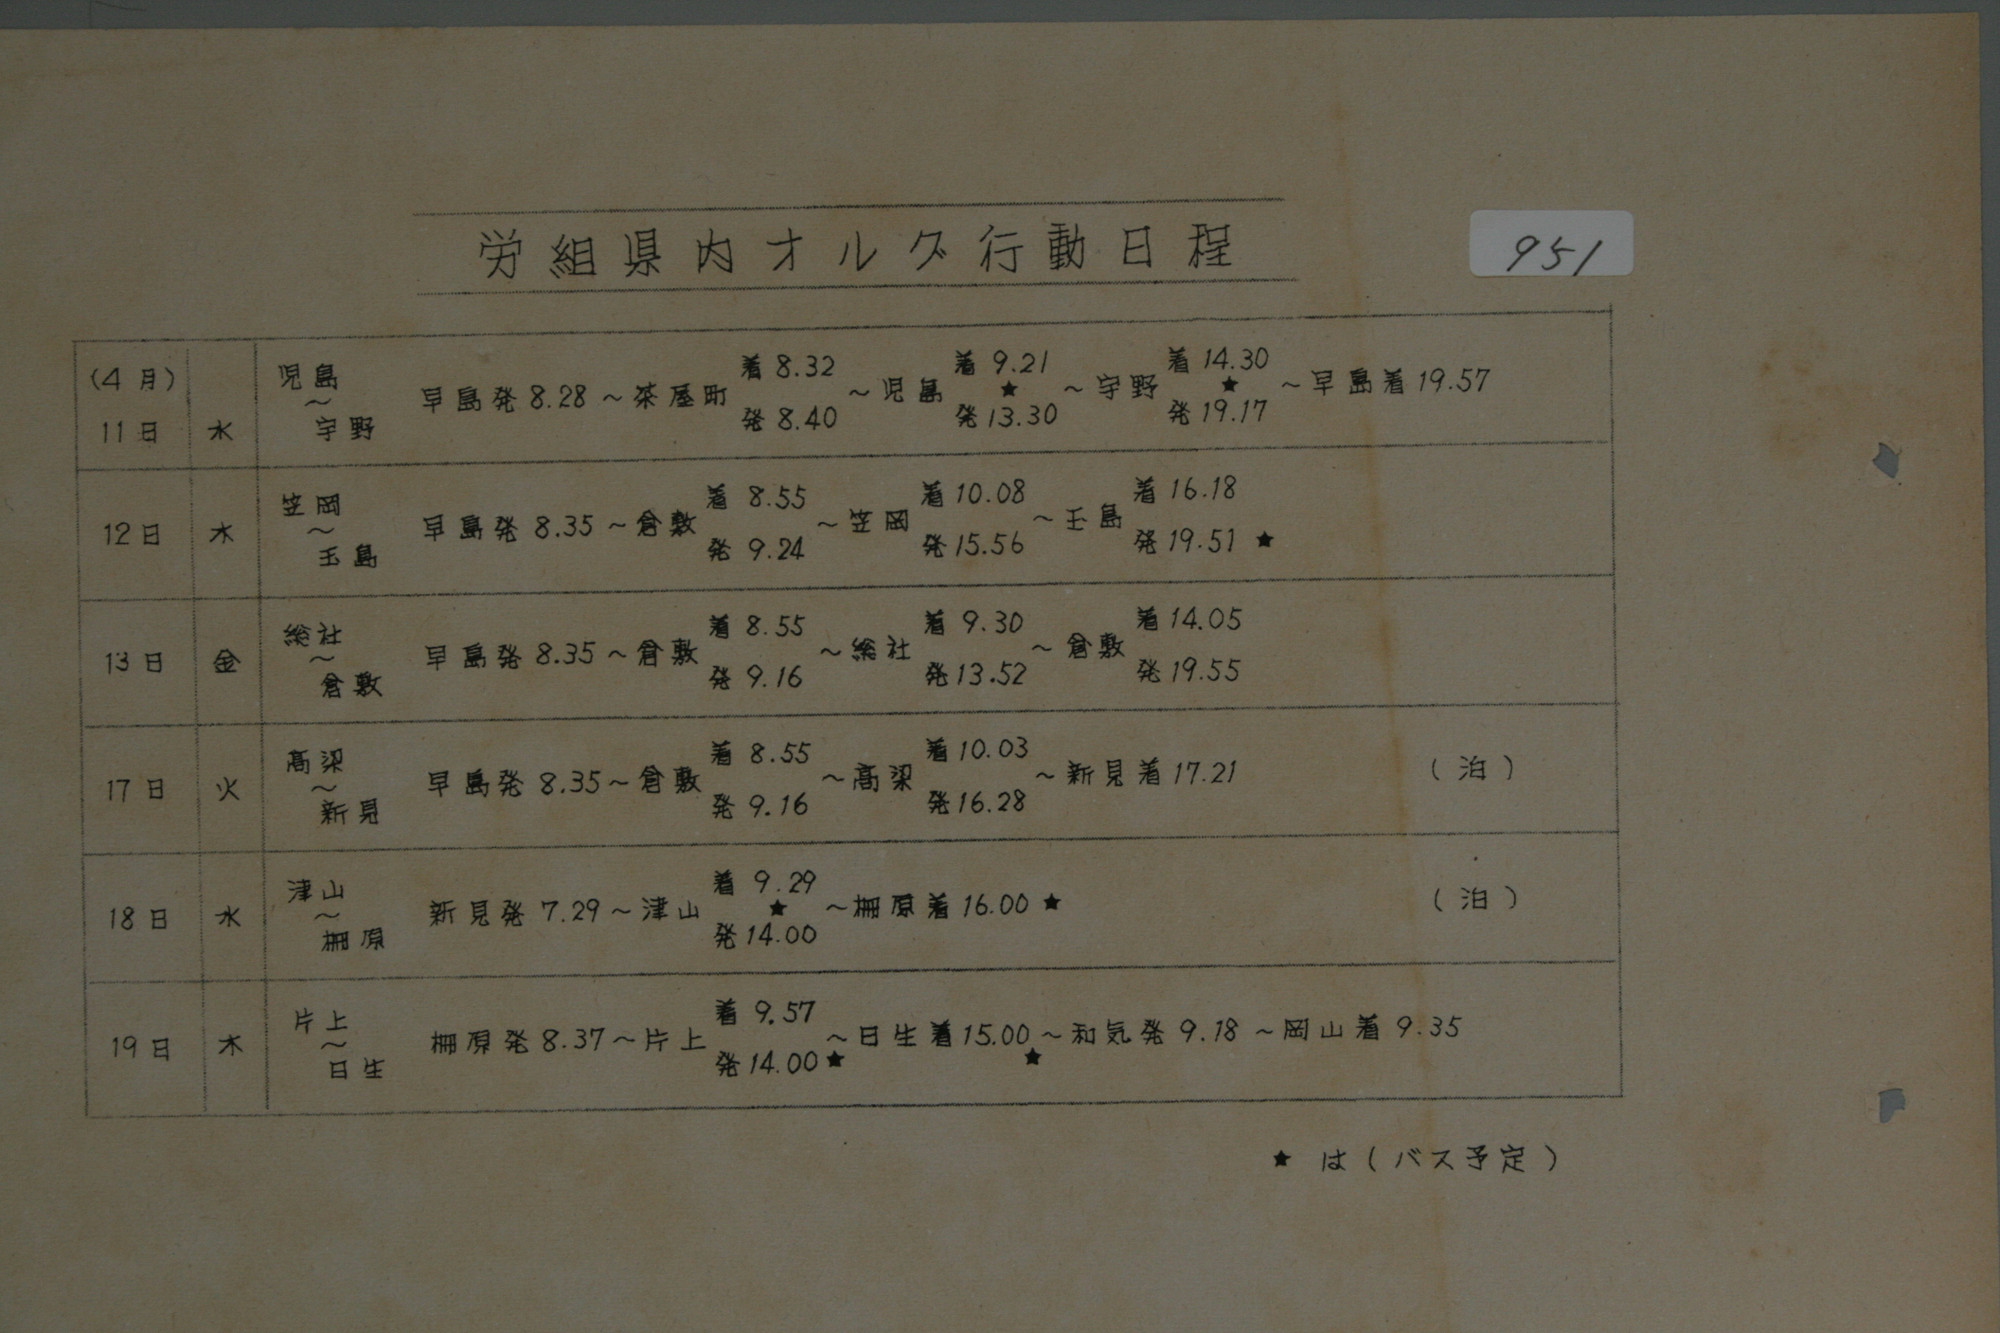 労組県内オルグ行動日程
951
(4月)
11日 水 児島～宇野 早島発8.28～茶屋町 着8.32 発8.40 ～児島 着9.21 ★ 発13.30 ～宇野 着14.30 ★ 発19.17 ～早島着19.57
12日 木 笠岡～玉島 早島発8.35～倉敷 着8.55 発9.24 ～笠岡 着10.08 発15.56 ～玉島 着16.18 発19.51 ★
13日 金 総社～倉敷 早島発8.35～倉敷 着8.55 発9.16 ～総社 着9.30 発13.52 ～倉敷 着14.05 発19.55
17日 火 高梁～新見 早島発8.35～倉敷 着8.55 発9.16 ～高梁 着10.03 発16.28 ～新見着17.21 (泊)
18日 水 津山～柵原 新見発7.29～津山 着9.29 ★ 発14.00 ～柵原着16.00 ★ (泊)
19日 木 片上～日生 柵原発8.37～片上 着9.57 発14.00 ★ ～日生着15.00 ★ ～和気発9.18～岡山着9.35
★は(バス予定)